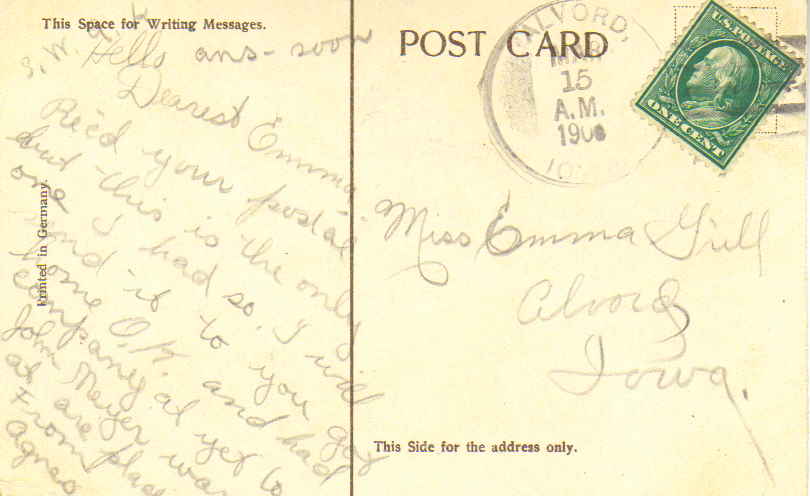 This Space for Writing Messages.
Hello ans-soon
Dearest Emma-
Rec'd your postal
but this is the only
one I had so. I will
it to you
home O.K. and had
company
John Meyer was
at are place
From
Agnes
Printed in Germany.
POST CARD
ALVORD,
MAR
15
A.M.
IOWA
U.S. POSTAGE
ONE CENT
Miss Emma Gill
Alvord
Iowa.
This Side for the address only.